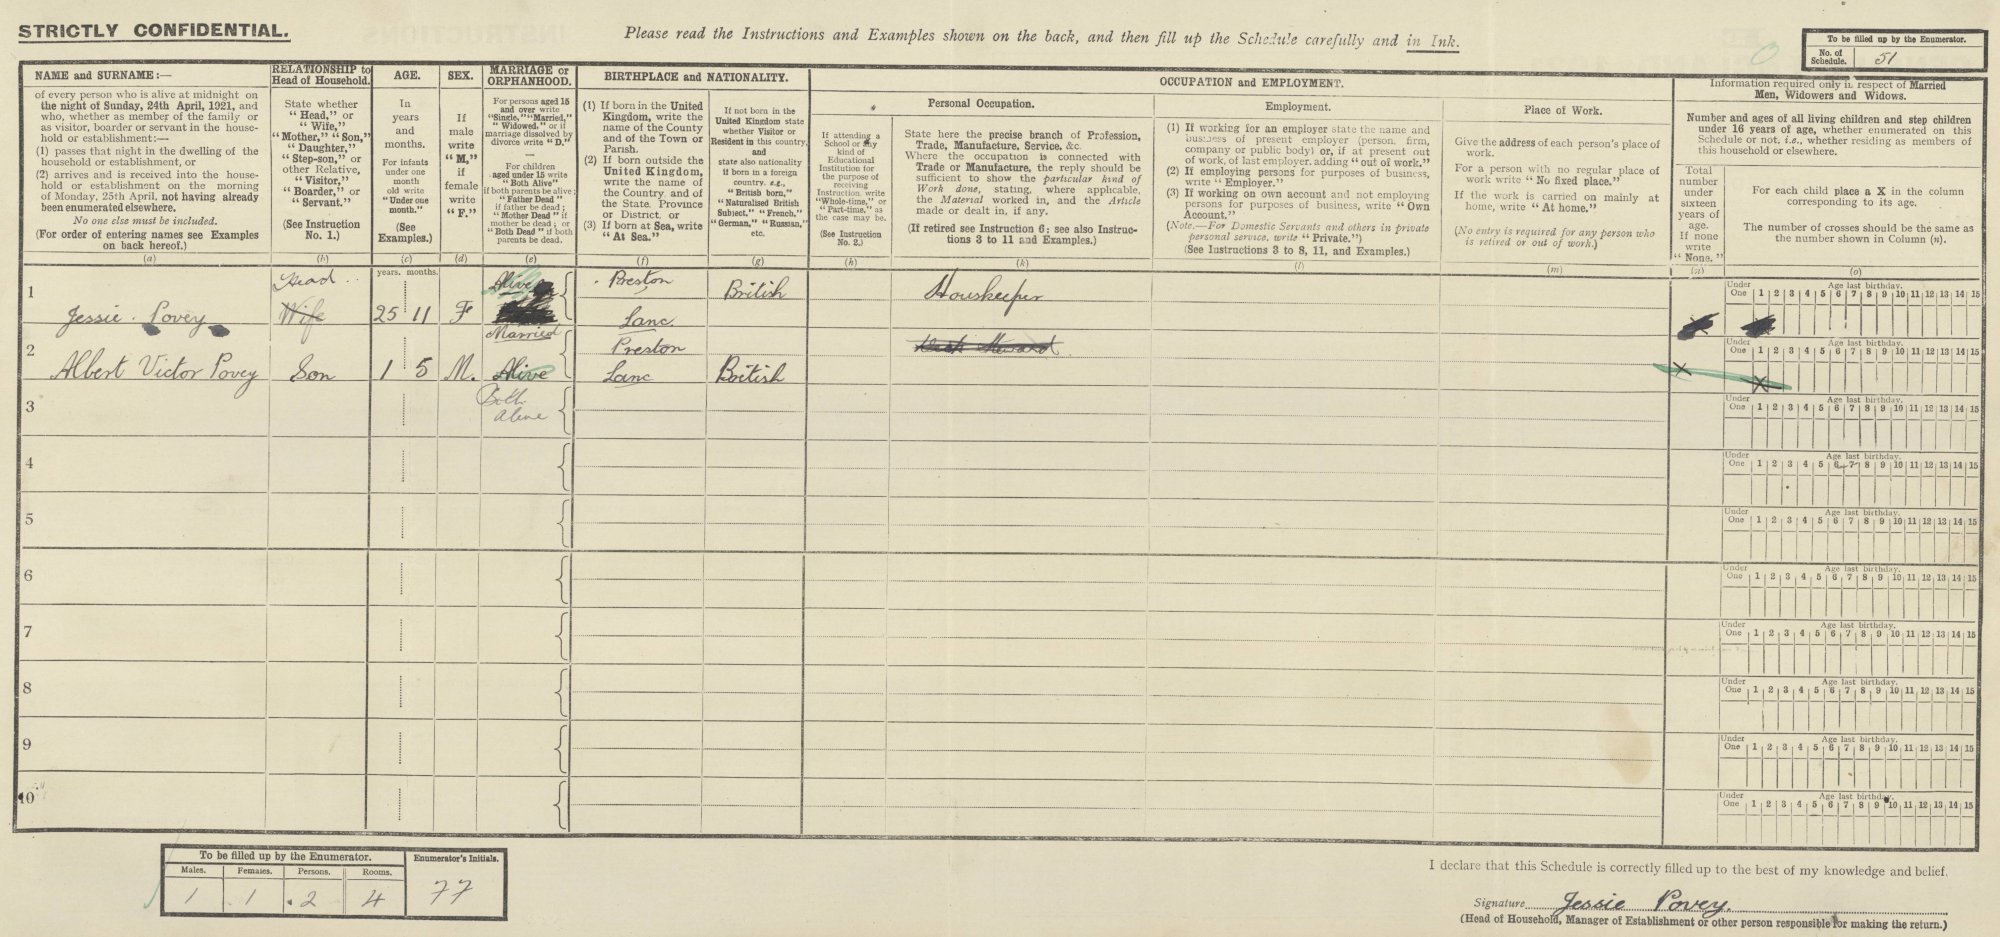 STRICTLY CONFIDENTIAL.
Please read the Instructions and Examples shown on the back, and then fill up the Schedule carefully and in Ink.
To be filled up by the Enumerator.
No. of Schedule. 51
NAME and SURNAME:—
of every person who is alive at midnight on
the night of Sunday, 24th April, 1921, and
who, whether as member of the family or
as visitor, boarder or servant in the house-
hold or establishment:—
(1) passes that night in the dwelling of the
household or establishment, or
(2) arrives and is received into the house-
hold or establishment on the morning
of Monday, 25th April, not having already
been enumerated elsewhere.
No one else must be included.
(For order of entering names see Examples
on back hereof.)
(a)
RELATIONSHIP to
Head of Household.
State whether
"Head," or
"Wife,"
"Mother," "Son,"
"Daughter,"
"Step-son," or
other Relative,
"Visitor,"
"Boarder," or
"Servant."
(See Instruction
No. 1.)
(b)
AGE.
In
years
and
months.
For infants
under one
month
old write
"Under one
month."
(See
Examples.)
(c)
SEX.
If
male
write
"M,"
if
female
write
"F."
(d)
MARRIAGE or
ORPHANHOOD.
For persons aged 15
and over write
"Single," "Married,"
"Widowed," or if
marriage dissolved by
divorce write "D."
—
For children
aged under 15 write
"Both Alive"
if both parents be alive;
"Father Dead"
if father be dead;
"Mother Dead" if
mother be dead; or
"Both Dead" if both
parents be dead.
(e)
BIRTHPLACE and NATIONALITY.
(1) If born in the United
Kingdom, write the
name of the County
and of the Town or
Parish.
(2) If born outside the
United Kingdom,
write the name of
the State, Province
or District, or
(3) If born at Sea, write
"At Sea."
(f)
If not born in the
United Kingdom state
whether Visitor or
Resident in this country,
and
state also nationality
if born in a foreign
country. e.g.,
"British born,"
"Naturalised British
Subject," "French,"
"German," "Russian,"
etc.
(g)
OCCUPATION and EMPLOYMENT.
If attending a
School or any
kind of
Educational
Institution for
the purpose of
receiving
Instruction, write
"Whole-time," or
"Part-time," as
the case may be.
(See Instruction
No. 2.)
(h)
Personal Occupation.
State here the precise branch of Profession,
Trade, Manufacture, Service, &c.
Where the occupation is connected with
Trade or Manufacture, the reply should be
sufficient to show the particular kind of
Work done, stating, where applicable,
the Material worked in, and the Article
made or dealt in, if any.
(If retired see Instruction 6: see also Instruc-
tions 3 to 11 and Examples.)
(k)
Employment.
(1) If working for an employer state the name and
business of present employer (person, firm,
company or public body) or, if at present out
of work, of last employer, adding "out of work."
(2) If employing persons for purposes of business,
write "Employer."
(3) If working on own account and not employing
persons for purposes of business, write "Own
Account."
(Note.—For Domestic Servants and others in private
personal service, write "Private.")
(See Instructions 3 to 8, 11, and Examples.)
(l)
Place of Work.
Give the address of each person's place of
work.
For a person with no regular place of
work write "No fixed place."
If the work is carried on mainly at
home, write "At home."
(No entry is required for any person who
is retired or out of work.)
(m)
Information required only in respect of Married
Men, Widowers and Widows.
Number and ages of all living children and step children
under 16 years of age, whether enumerated on this
Schedule or not, i.e., whether residing as members of
this household or elsewhere.
Total
number
under
sixteen
years of
age.
If none
write
"None."
(n)
For each child place a X in the column
corresponding to its age.
The number of crosses should be the same as
the number shown in Column (n).
(o)
years. months.
1
Jessie. Povey
Head
Wife
25 11
F
Alive
Married
Preston
Lanc.
British
Houskeeper
Under One Age last birthday. 1 2 3 4 5 6 7 8 9 10 11 12 13 14 15
2
Albert Victor Povey
Son
1 5
M.
Alive
Both
alive
Preston
Lanc
British
X
X
Under One Age last birthday. 1 2 3 4 5 6 7 8 9 10 11 12 13 14 15
3
Under One Age last birthday. 1 2 3 4 5 6 7 8 9 10 11 12 13 14 15
4
Under One Age last birthday. 1 2 3 4 5 6 7 8 9 10 11 12 13 14 15
5
Under One Age last birthday. 1 2 3 4 5 6 7 8 9 10 11 12 13 14 15
6
Under One Age last birthday. 1 2 3 4 5 6 7 8 9 10 11 12 13 14 15
7
Under One Age last birthday. 1 2 3 4 5 6 7 8 9 10 11 12 13 14 15
8
Under One Age last birthday. 1 2 3 4 5 6 7 8 9 10 11 12 13 14 15
9
Under One Age last birthday. 1 2 3 4 5 6 7 8 9 10 11 12 13 14 15
10
Under One Age last birthday. 1 2 3 4 5 6 7 8 9 10 11 12 13 14 15
To be filled up by the Enumerator.
Enumerator's Initials.
Males. Females. Persons. Rooms.
1 1 2 4
I declare that this Schedule is correctly filled up to the best of my knowledge and belief.
Signature Jessie Povey.
(Head of Household, Manager of Establishment or other person responsible for making the return.)